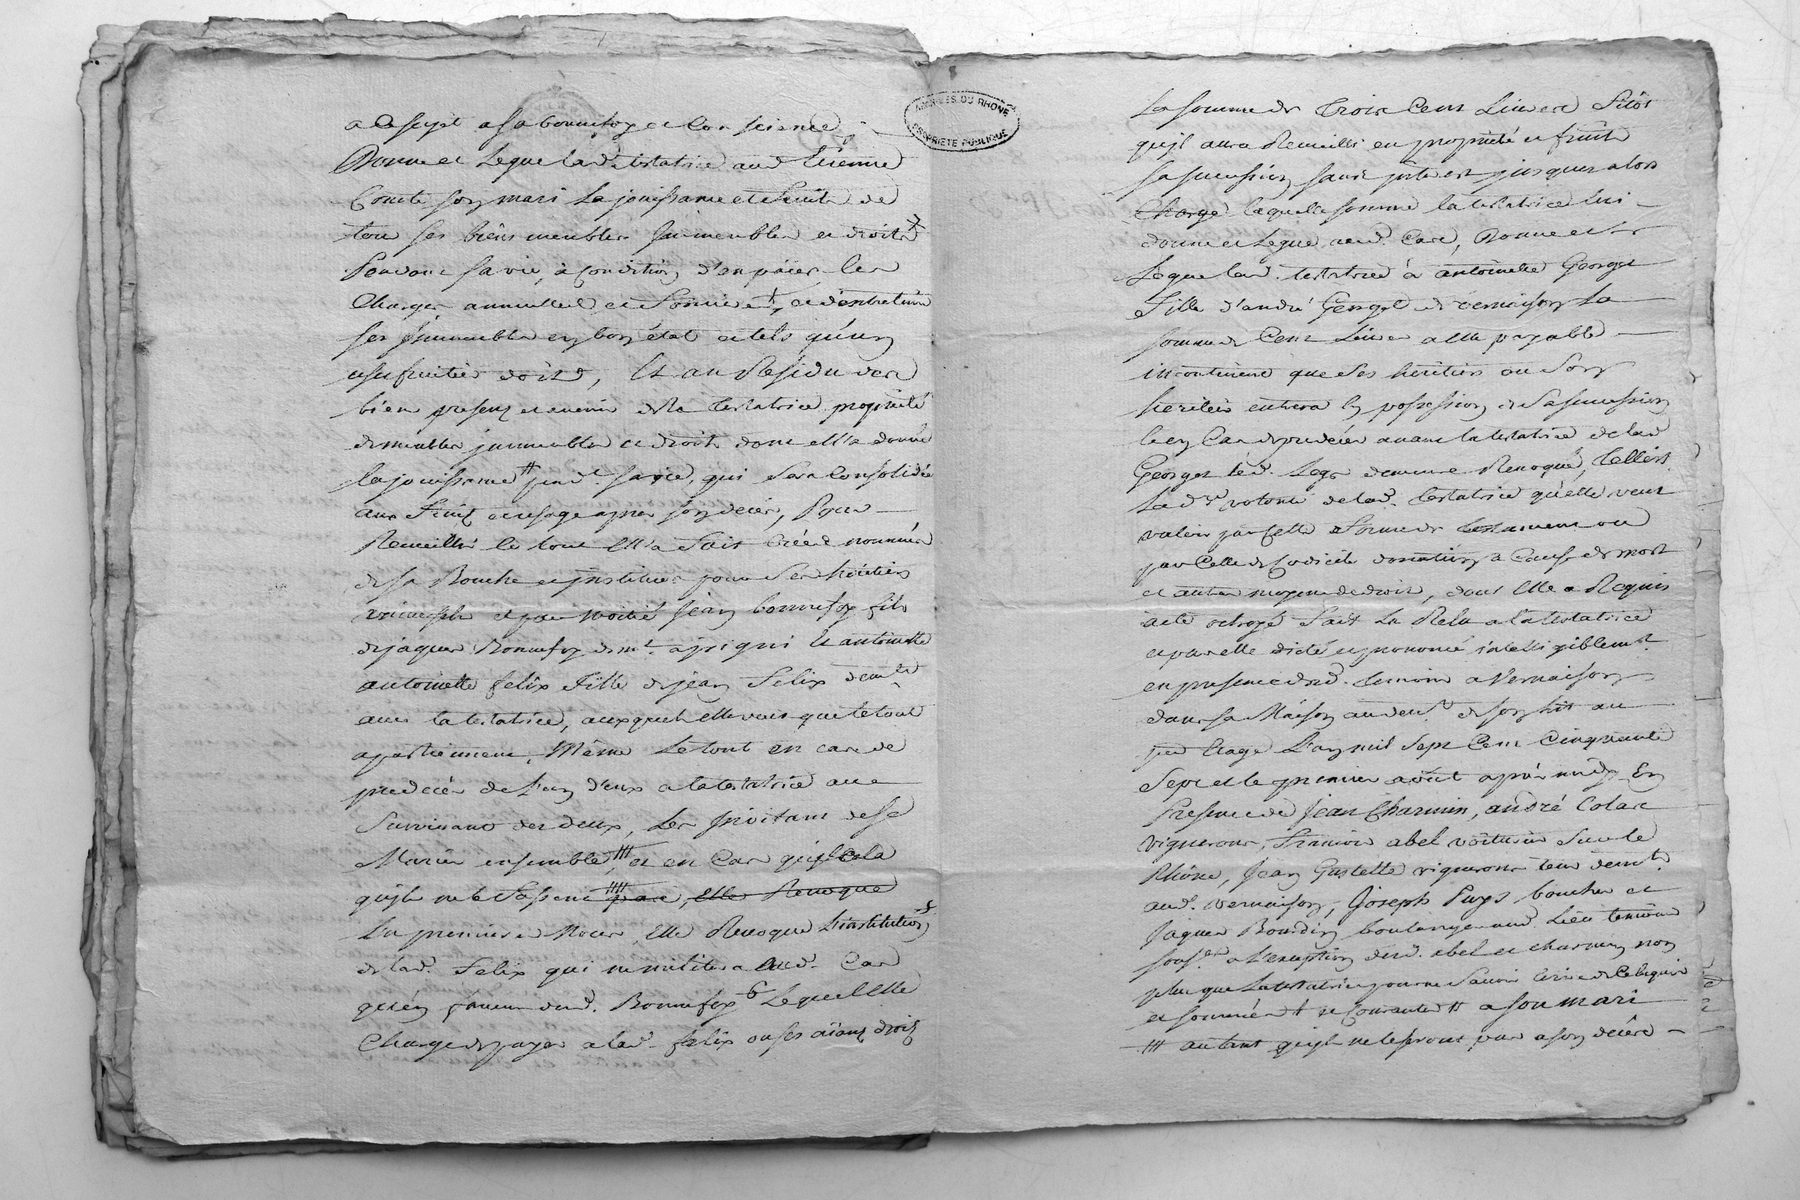 a ce sujet a sa bonne foy et Conscience
Donne et Legue lad. testatrice aud. Etienne
Comte son mari La jouissance et fruits de
tous ses biens meubles Immeubles et droits
Pendant sa vie, à Condition d'en païer les
Charges annuelles et foncieres, et d'entretenir
ses Immeubles en bon état et tels qu'un
usufruitier doit, Et au Residu des
biens presens et avenir de la testatrice propriété
de meubles immeubles et droits dont elle a donné
la jouissance # pend. sa vie, qui sera Consolidée
aux fruits et usage apres son deces, Pour
Recueillir le tout Elle a fait Créé et nommé
de sa Bouche et institué pour ses héritiers
universels et par moitié Jean bonnefoy fils
de jaques Bonnefoy dem.t a Irigni Et antoinette
antoinette felix fille de jean felix dem.te
avec la testatrice, auxquels elle veut que le tout
apartienne, Même Le tout en cas de
predeces de l'un d'eux a la testatrice au
Survivant des deux, Les Invitant de se
Marier ensemble, ### et en Cas qu'ils
qu'ils ne le fassent #### par, elle Revoque
En premieres Noces, Elle Revoque l'institution
de lad. felix qui ne militera aud. Cas
qu'en faveur dud. Bonnefoy Lequel Elle
Charge de payer a lad. felix ou ses aïans droit
ARCHIVES DU RHÔNE
PROPRIETE PUBLIQUE
La somme de trois Cent Livres Sitôt
qu'il aura Recueilli en propriété et fruits
sa succession sans interest jusques alors
Charge laquelle somme la testatrice lui
donne et Legue aud. Cas, Donne et
Legue lad. testatrice à antoinette George
fille d'andré George de vernaison La
somme de Cent Livres a elle payable
incontinent que ses heritiers ou son
heritier entrera en possession de sa succession
Et en Cas de predeces avant la testatrice de lad.
George led. Legs demeure Revoqué, telle est
La d.re volonté de lad. testatrice qu'elle veut
valoir par cette forme de testament ou
par Celle de Codicile donation a Cause de mort
et autres moyens de droit, dont Elle a Requis
acte octroyé Fait Lu Relu a la testatrice
et par elle dicté et prononcé intelligiblem.t
en presence desd. temoins a Vernaison
dans sa Maison au dev.t de son lit au
p.er Etage L'an mil sept Cent Cinquante
Sept et le premier août après midy En
Presence de Jean Charmin, andré Colas
vignerons, abel voiturier sur le
Rhône, Jean Gustelle vigneron tous dem.t
aud. vernaison, Joseph Puys boucher et
Jaques Bourdin boulanger aud. Lieu temoins
sous.nes a l'exception desd. abel et charmin non
plus que La testatrice pour ne savoir écrire de Ce Enquis
et sommés + et Courantes # a son mari
### autant qu'ils ne le feront par a son décès